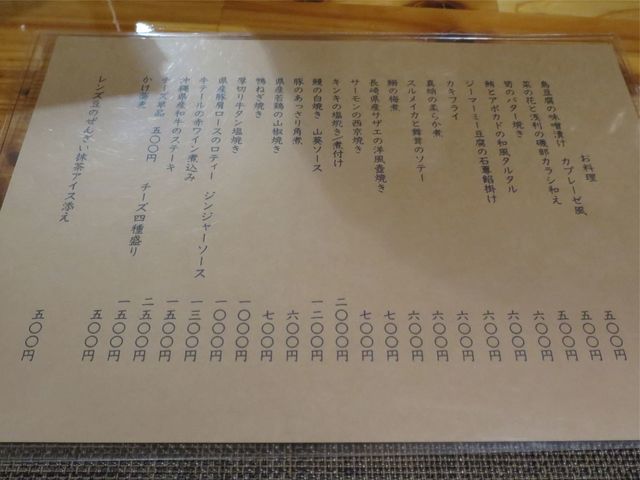 お料理
島豆腐の味噌漬け カプレーゼ風 五〇〇円
菜の花と浅利の磯部カラシ和え 五〇〇円
筍のバター焼き 五〇〇円
鮪とアボカドの和風タルタル 六〇〇円
ジーマーミー豆腐の石蓴餡掛け 六〇〇円
カキフライ 六〇〇円
真蛸の柔らか煮 六〇〇円
スルメイカと舞茸のソテー 六〇〇円
鰯の梅煮 六〇〇円
長崎県産サザエの洋風壺焼き 七〇〇円
サーモンの西京焼き 七〇〇円
キンキの塩焼き/煮付け 二〇〇〇円
鰻の白焼き 山葵ソース 一二〇〇円
豚のあっさり角煮 六〇〇円
県産若鶏の山椒焼き 七〇〇円
鴨ねぎ焼き 一〇〇〇円
厚切り牛タン塩焼き 一〇〇〇円
県産豚肩ロースのロティー ジンジャーソース 一三〇〇円
牛テールの赤ワイン煮込み 一五〇〇円
沖縄県産和牛のステーキ 二五〇〇円
チーズ単品 五〇〇円 チーズ四種盛り 一五〇〇円
かけ蕎麦 五〇〇円
レンズ豆のぜんざい抹茶アイス添え 五〇〇円